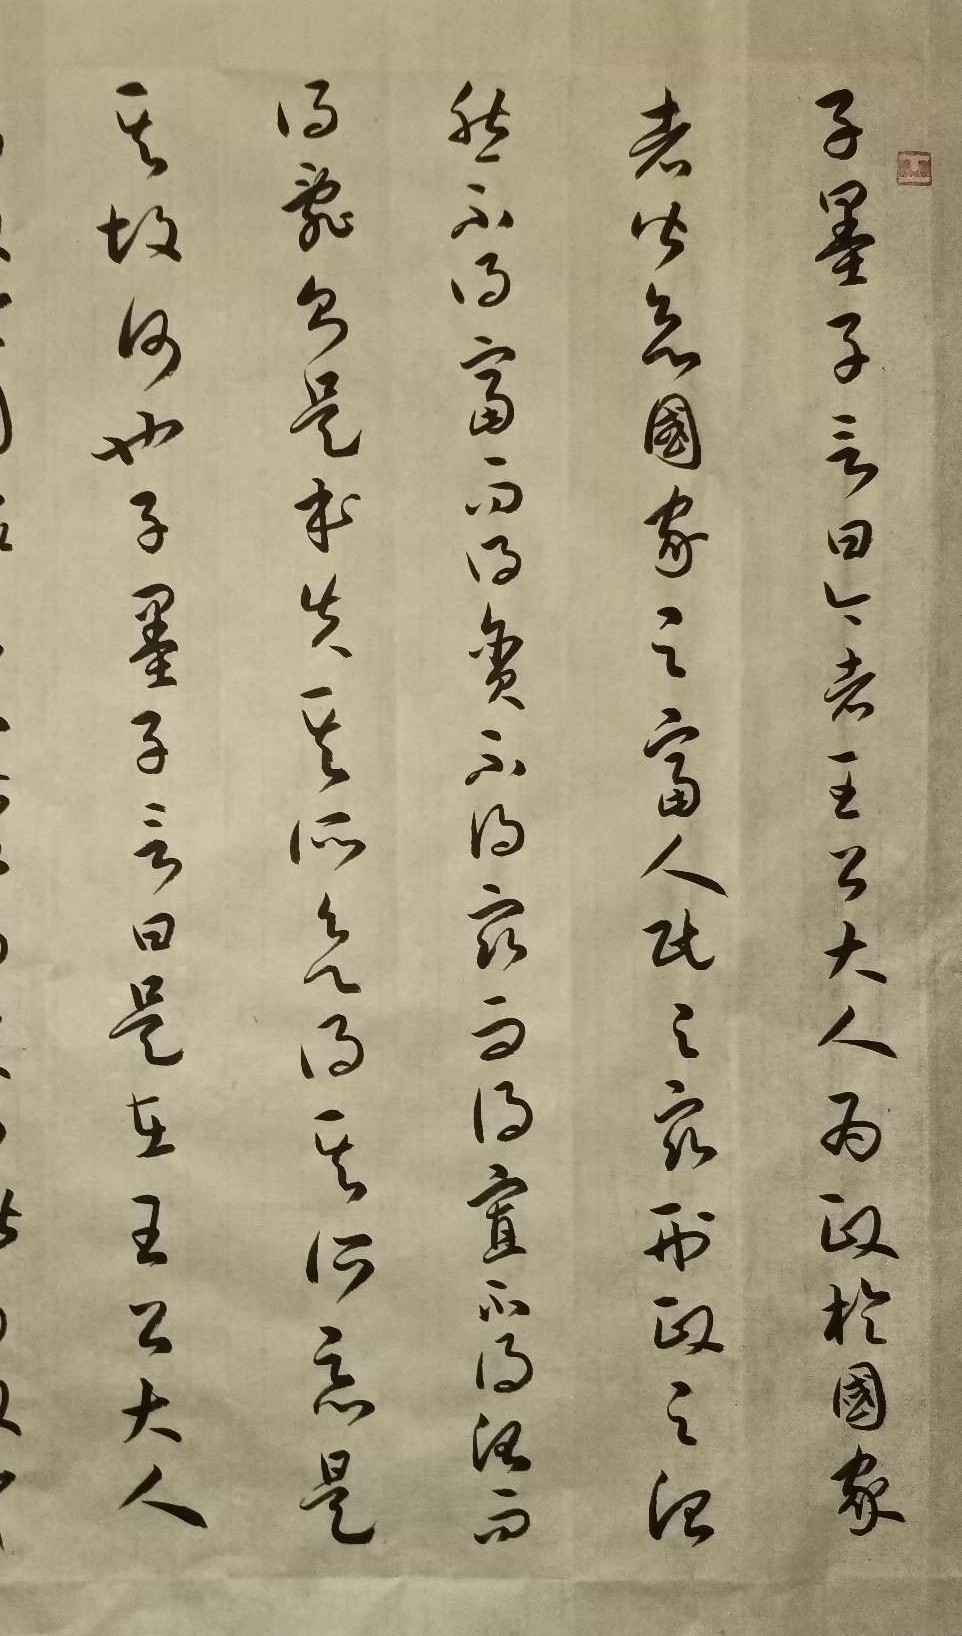 子墨子言曰今者王公大人為政於國家
者皆欲國家之富人民之眾刑政之治
然不得富而得貧不得眾而得寡不得治而
得亂則是本失其所欲得其所惡是
其故何也子墨子言曰是在王公大人